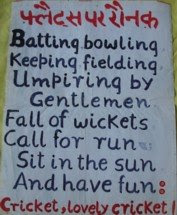 फ्लैट्स पर रौनक
Batting, bowling
Keeping, fielding
Umpiring by
Gentlemen.
Fall of wickets
Call for run
Sit in the sun
And have fun:
Cricket, lovely cricket!